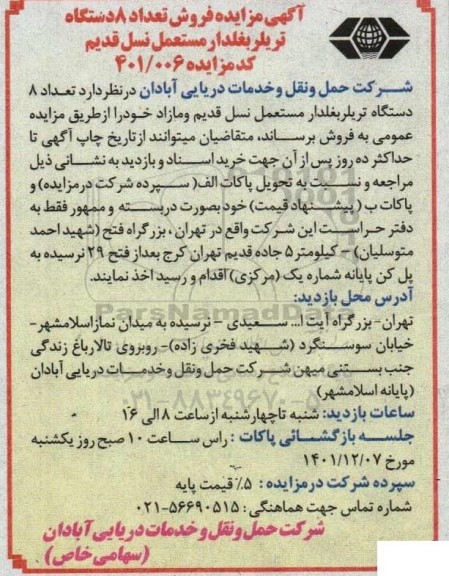 آگهی مزایده فروش تعداد ۸ دستگاه
تریلر بغلدار مستعمل نسل قدیم
کد مزایده ۴۰۱/۰۰۶
شرکت حمل ونقل وخدمات دریایی آبادان درنظردارد تعداد ۸
دستگاه تریلربغلدار مستعمل نسل قدیم ومازاد خودرا ازطریق مزایده
عمومی به فروش برساند، متقاضیان میتوانند ازتاریخ چاپ آگهی تا
حداکثر ده روز پس از آن جهت خرید اسناد و بازدید به نشانی ذیل
مراجعه و نسبت به تحویل پاکات الف( سپرده شرکت درمزایده) و
پاکات ب ( پیشنهاد قیمت) خود بصورت دربسته و ممهور فقط به
دفتر حراست این شرکت واقع در تهران ، بزرگراه فتح (شهید احمد
متوسلیان) - کیلومتر ۵ جاده قدیم تهران کرج بعداز فتح ۲۹ نرسیده به
پل کن پایانه شماره یک (مرکزی) اقدام و رسید اخذ نمایند.
آدرس محل بازدید:
تهران- بزرگراه آیت ا... سعیدی - نرسیده به میدان نمازاسلامشهر-
خیابان سوسنگرد (شهید فخری زاده)- روبروی تالارباغ زندگی
جنب بستنی میهن شرکت حمل ونقل وخدمات دریایی آبادان
(پایانه اسلامشهر)
ساعات بازدید: شنبه تاچهارشنبه ازساعت ۸ الی ۱۶
جلسه بازگشائی پاکات : راس ساعت ۱۰ صبح روز یکشنبه
مورخ ۱۴۰۱/۱۲/۰۷
سپرده شرکت درمزایده : ۵٪ قیمت پایه
شماره تماس جهت هماهنگی : ۵۶۶۹۰۵۱۵-۰۲۱
شرکت حمل ونقل و خدمات دریایی آبادان
(سهامی خاص)
ParsNamadData
۰۲۱-۸۸۳۴۹۶۷۰-۵